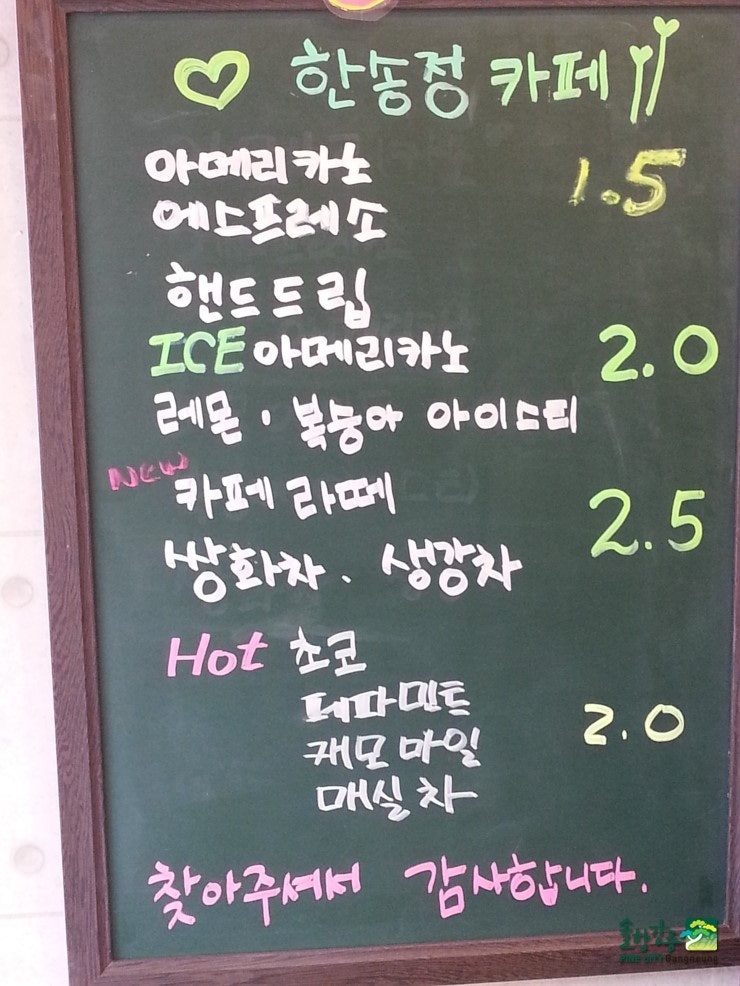 한송정 카페
아메리카노 1.5
에스프레소
핸드드립
ICE 아메리카노 2.0
레몬 · 복숭아 아이스티
New
카페 라떼 2.5
쌍화차 . 생강차
Hot 초코
페파민트
캐모마일 2.0
매실차
찾아주셔서 감사합니다.
솔향강릉
PINE CITY Gangneung